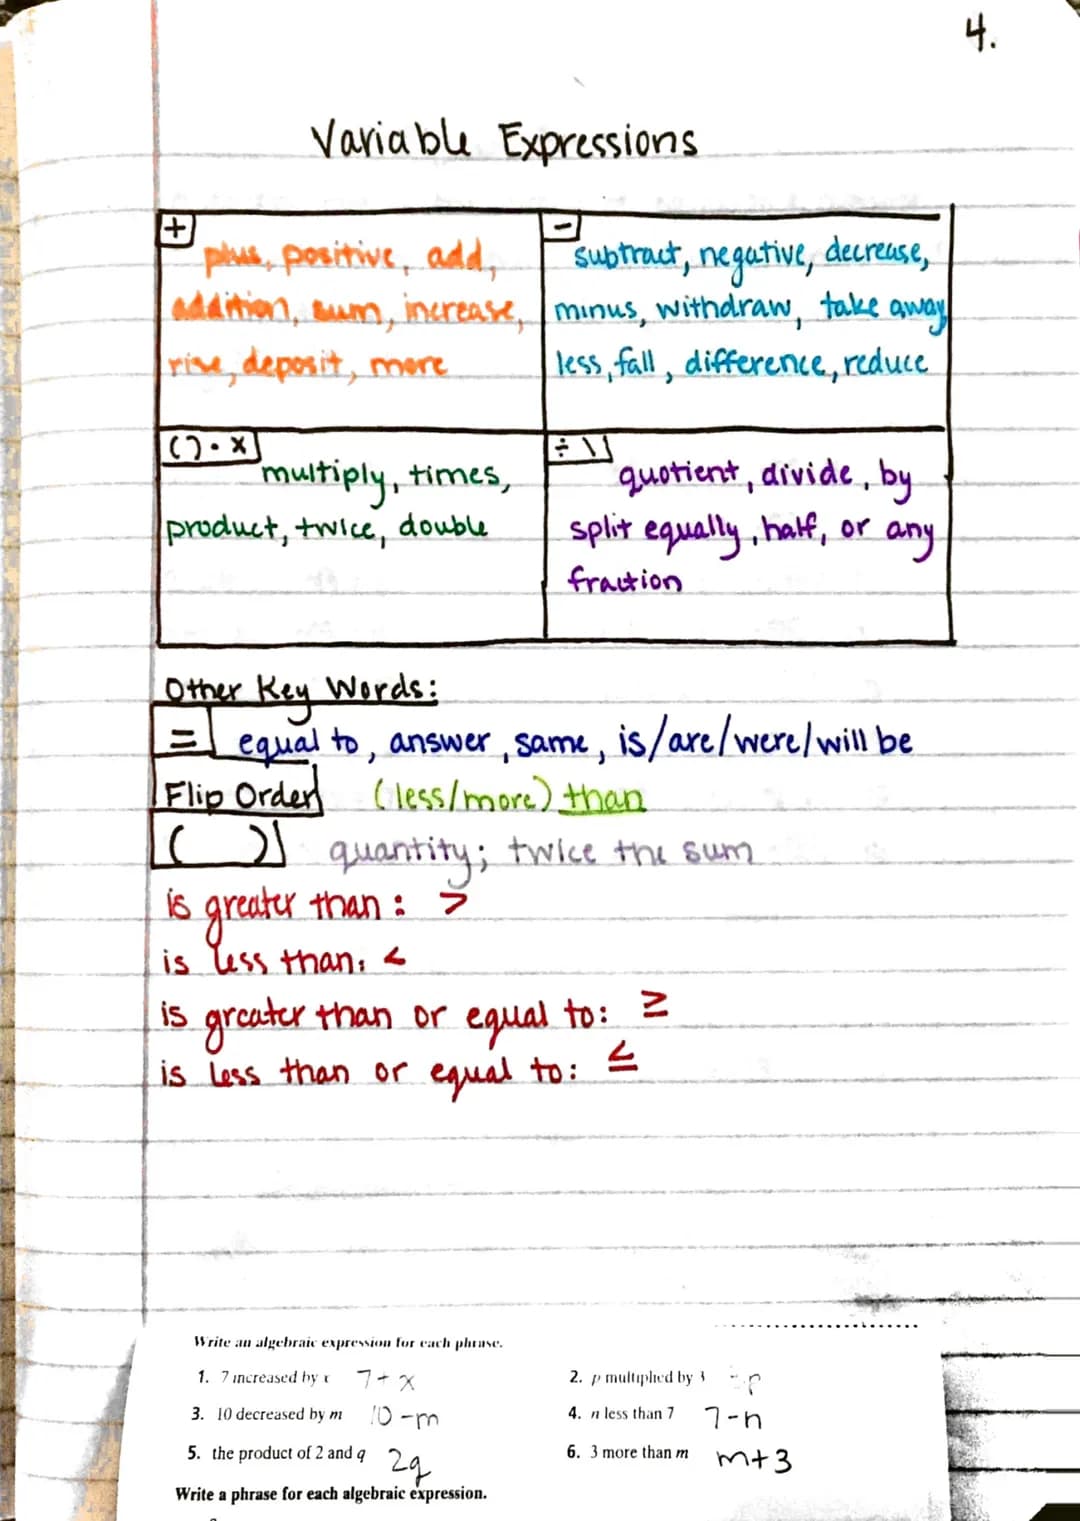 4.
Variable Expressions
+
plus, positive, add,
addition, sum, increase,
rise, deposit, more
-
subtract, negative, decrease,
minus, withdraw, take away
less, fall, difference, reduce
( ) · x
multiply, times,
product, twice, double
÷ \
quotient, divide, by
split equally, half, or any
fraction
Other Key Words:
= equal to, answer, same, is/are/were/will be
Flip Order (less/more) than
( ) quantity; twice the sum
is greater than: >
is less than: <
is greater than or equal to: ≥
is less than or equal to: ≤
Write an algebraic expression for each phrase.
1. 7 increased by x 7+x
2. p multiplied by 3
3. 10 decreased by m 10-m
4. n less than 7 7-n
5. the product of 2 and q 2q
6. 3 more than m m+3
Write a phrase for each algebraic expression.